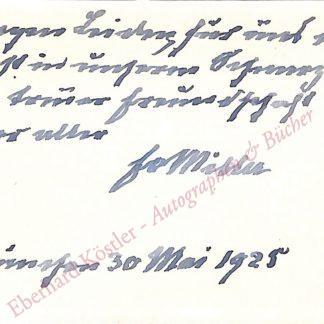 Leiden für uns
ist in unserem Schmerz
treuer Freundschaft
aller
München 30 Mai 1925
Eberhard Köstler - Autographen & Bücher